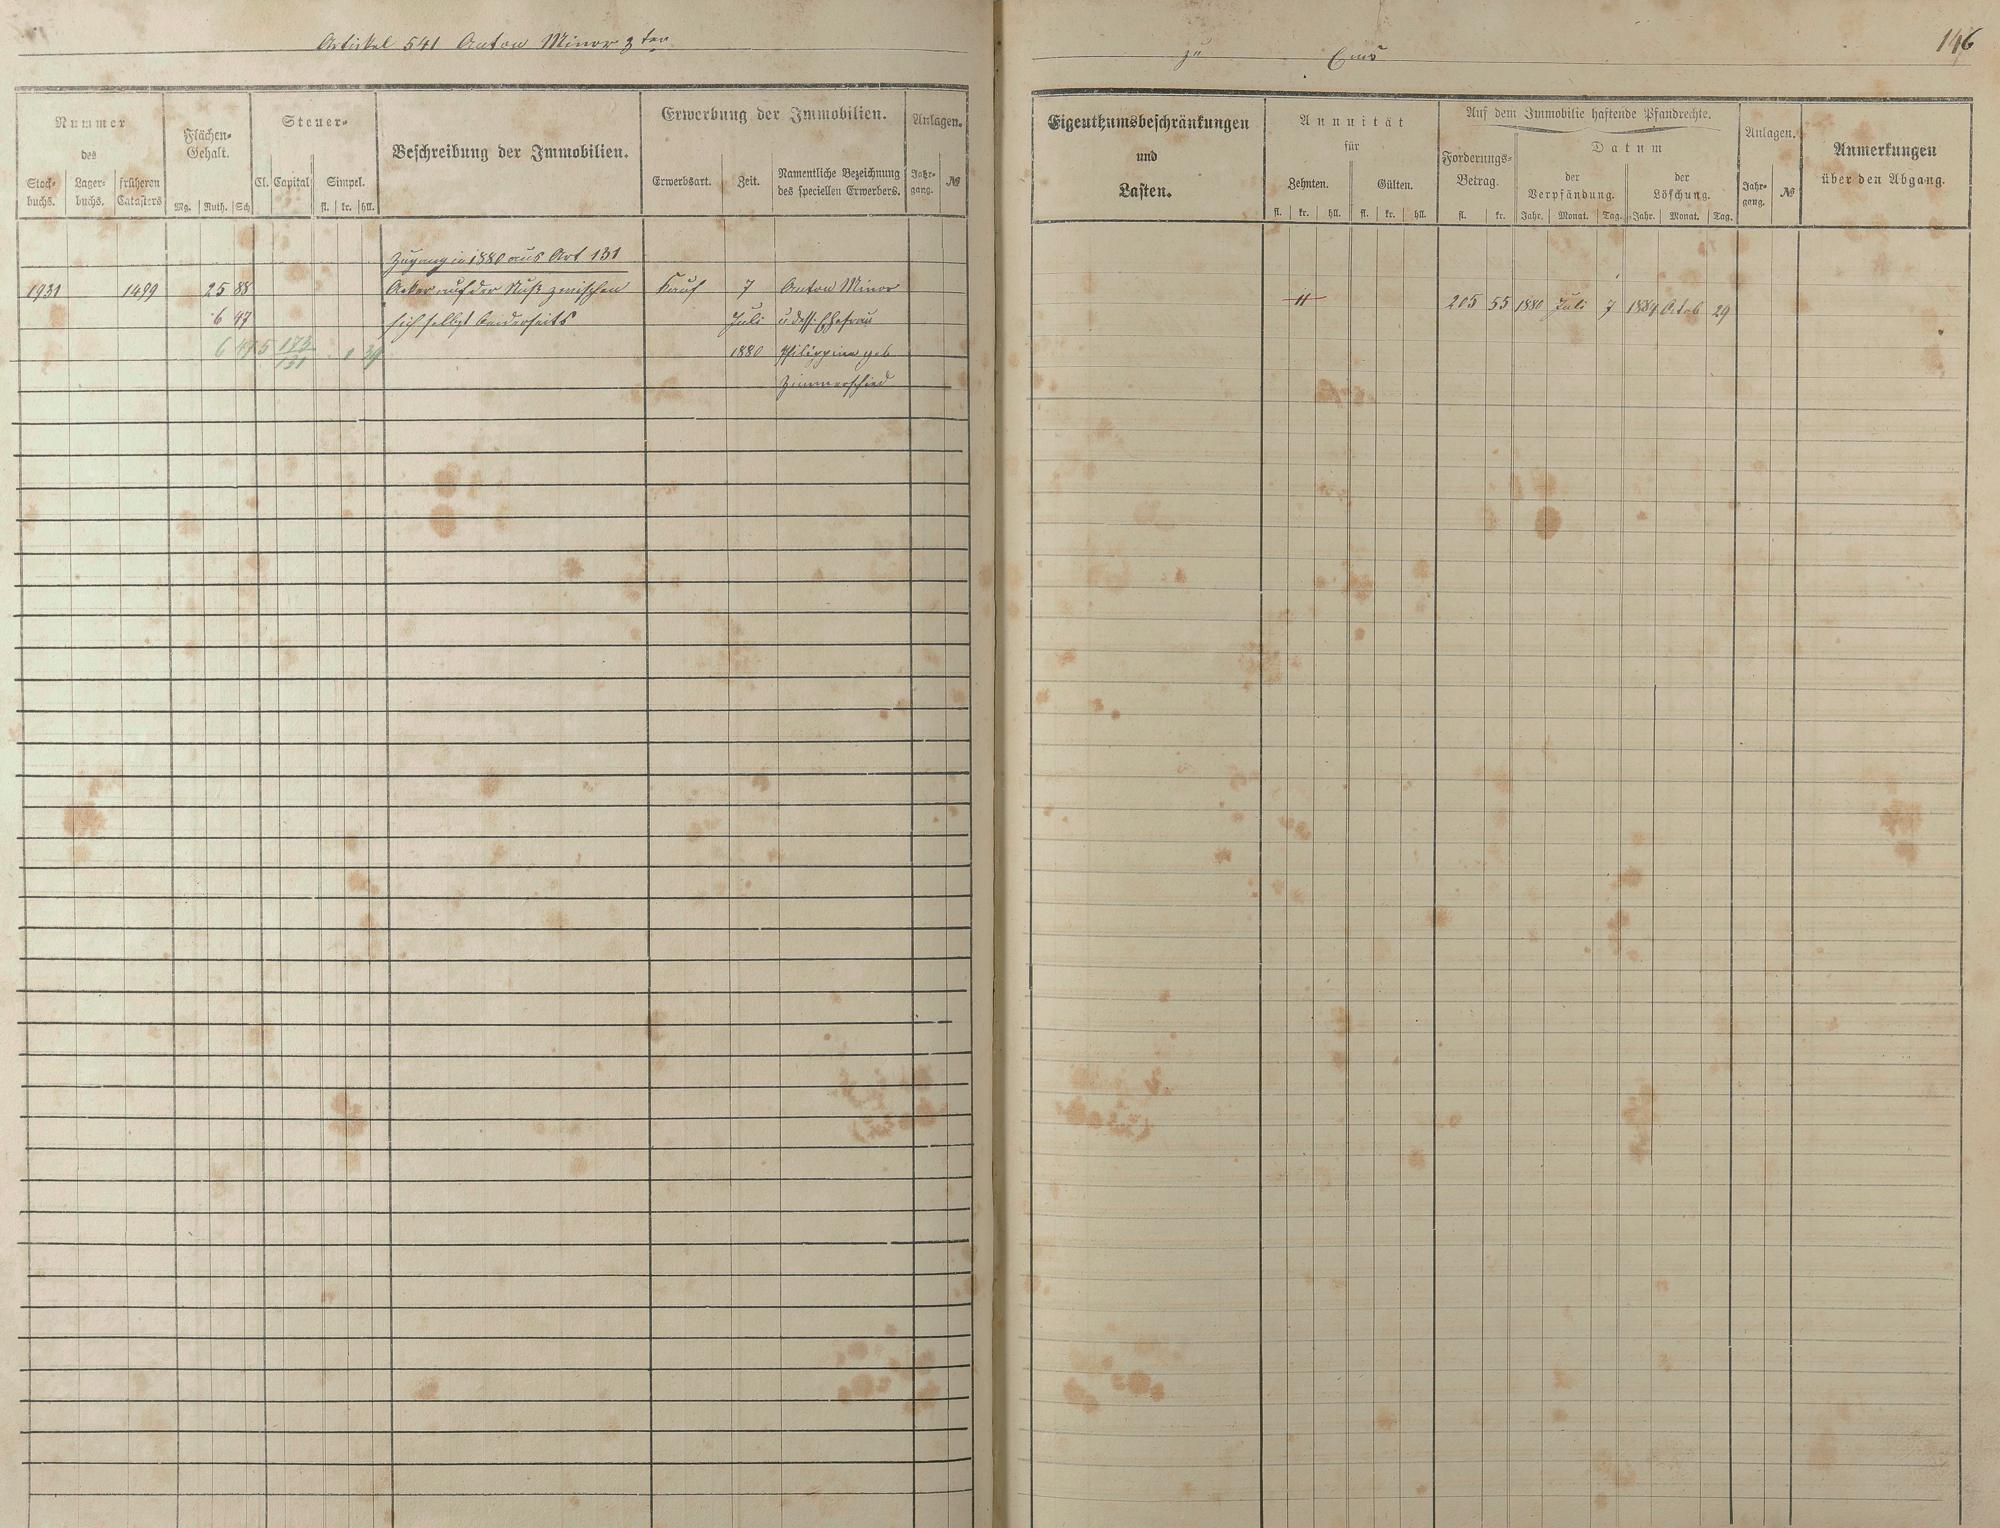 Artikel 541 Anton Minor 3ten
zu Ems
146
Nummer
des
Stock-
buchs.
Lager-
buchs.
früheren
Catasters
Flächen-
Gehalt.
Mg. Ruth. Sch
Steuer-
Cl. Capital Simpel.
fl. kr. hll.
Beschreibung der Immobilien.
Erwerbung der Immobilien.
Erwerbsart. Zeit.
Namentliche Bezeichnung
des speciellen Erwerbers.
Anlagen.
Jahr-
gang.
№
Eigenthumsbeschränkungen
und
Lasten.
Annuität
für
Zehnten. Gülten.
fl. kr. hll. fl. kr. hll.
Auf dem Immobilie haftende Pfandrechte.
Forderungs-
Betrag.
fl. kr.
Datum
der
Verpfändung.
der
Löschung.
Jahr. Monat. Tag. Jahr. Monat. Tag.
Anlagen.
Jahr-
gang.
№
Anmerkungen
über den Abgang.
Zugang in 1880 aus Art 131
1931 1499 25 88 Acker auf der Nuß zwischen Kauf 7 Anton Minor
6 47 sich selbst beiderseits Juli u dess. Ehefrau
6 47 5 1 29 1880 Philippine geb
Zimmerschied
11 205 55 1880 Juli 7 1884 Octob 29